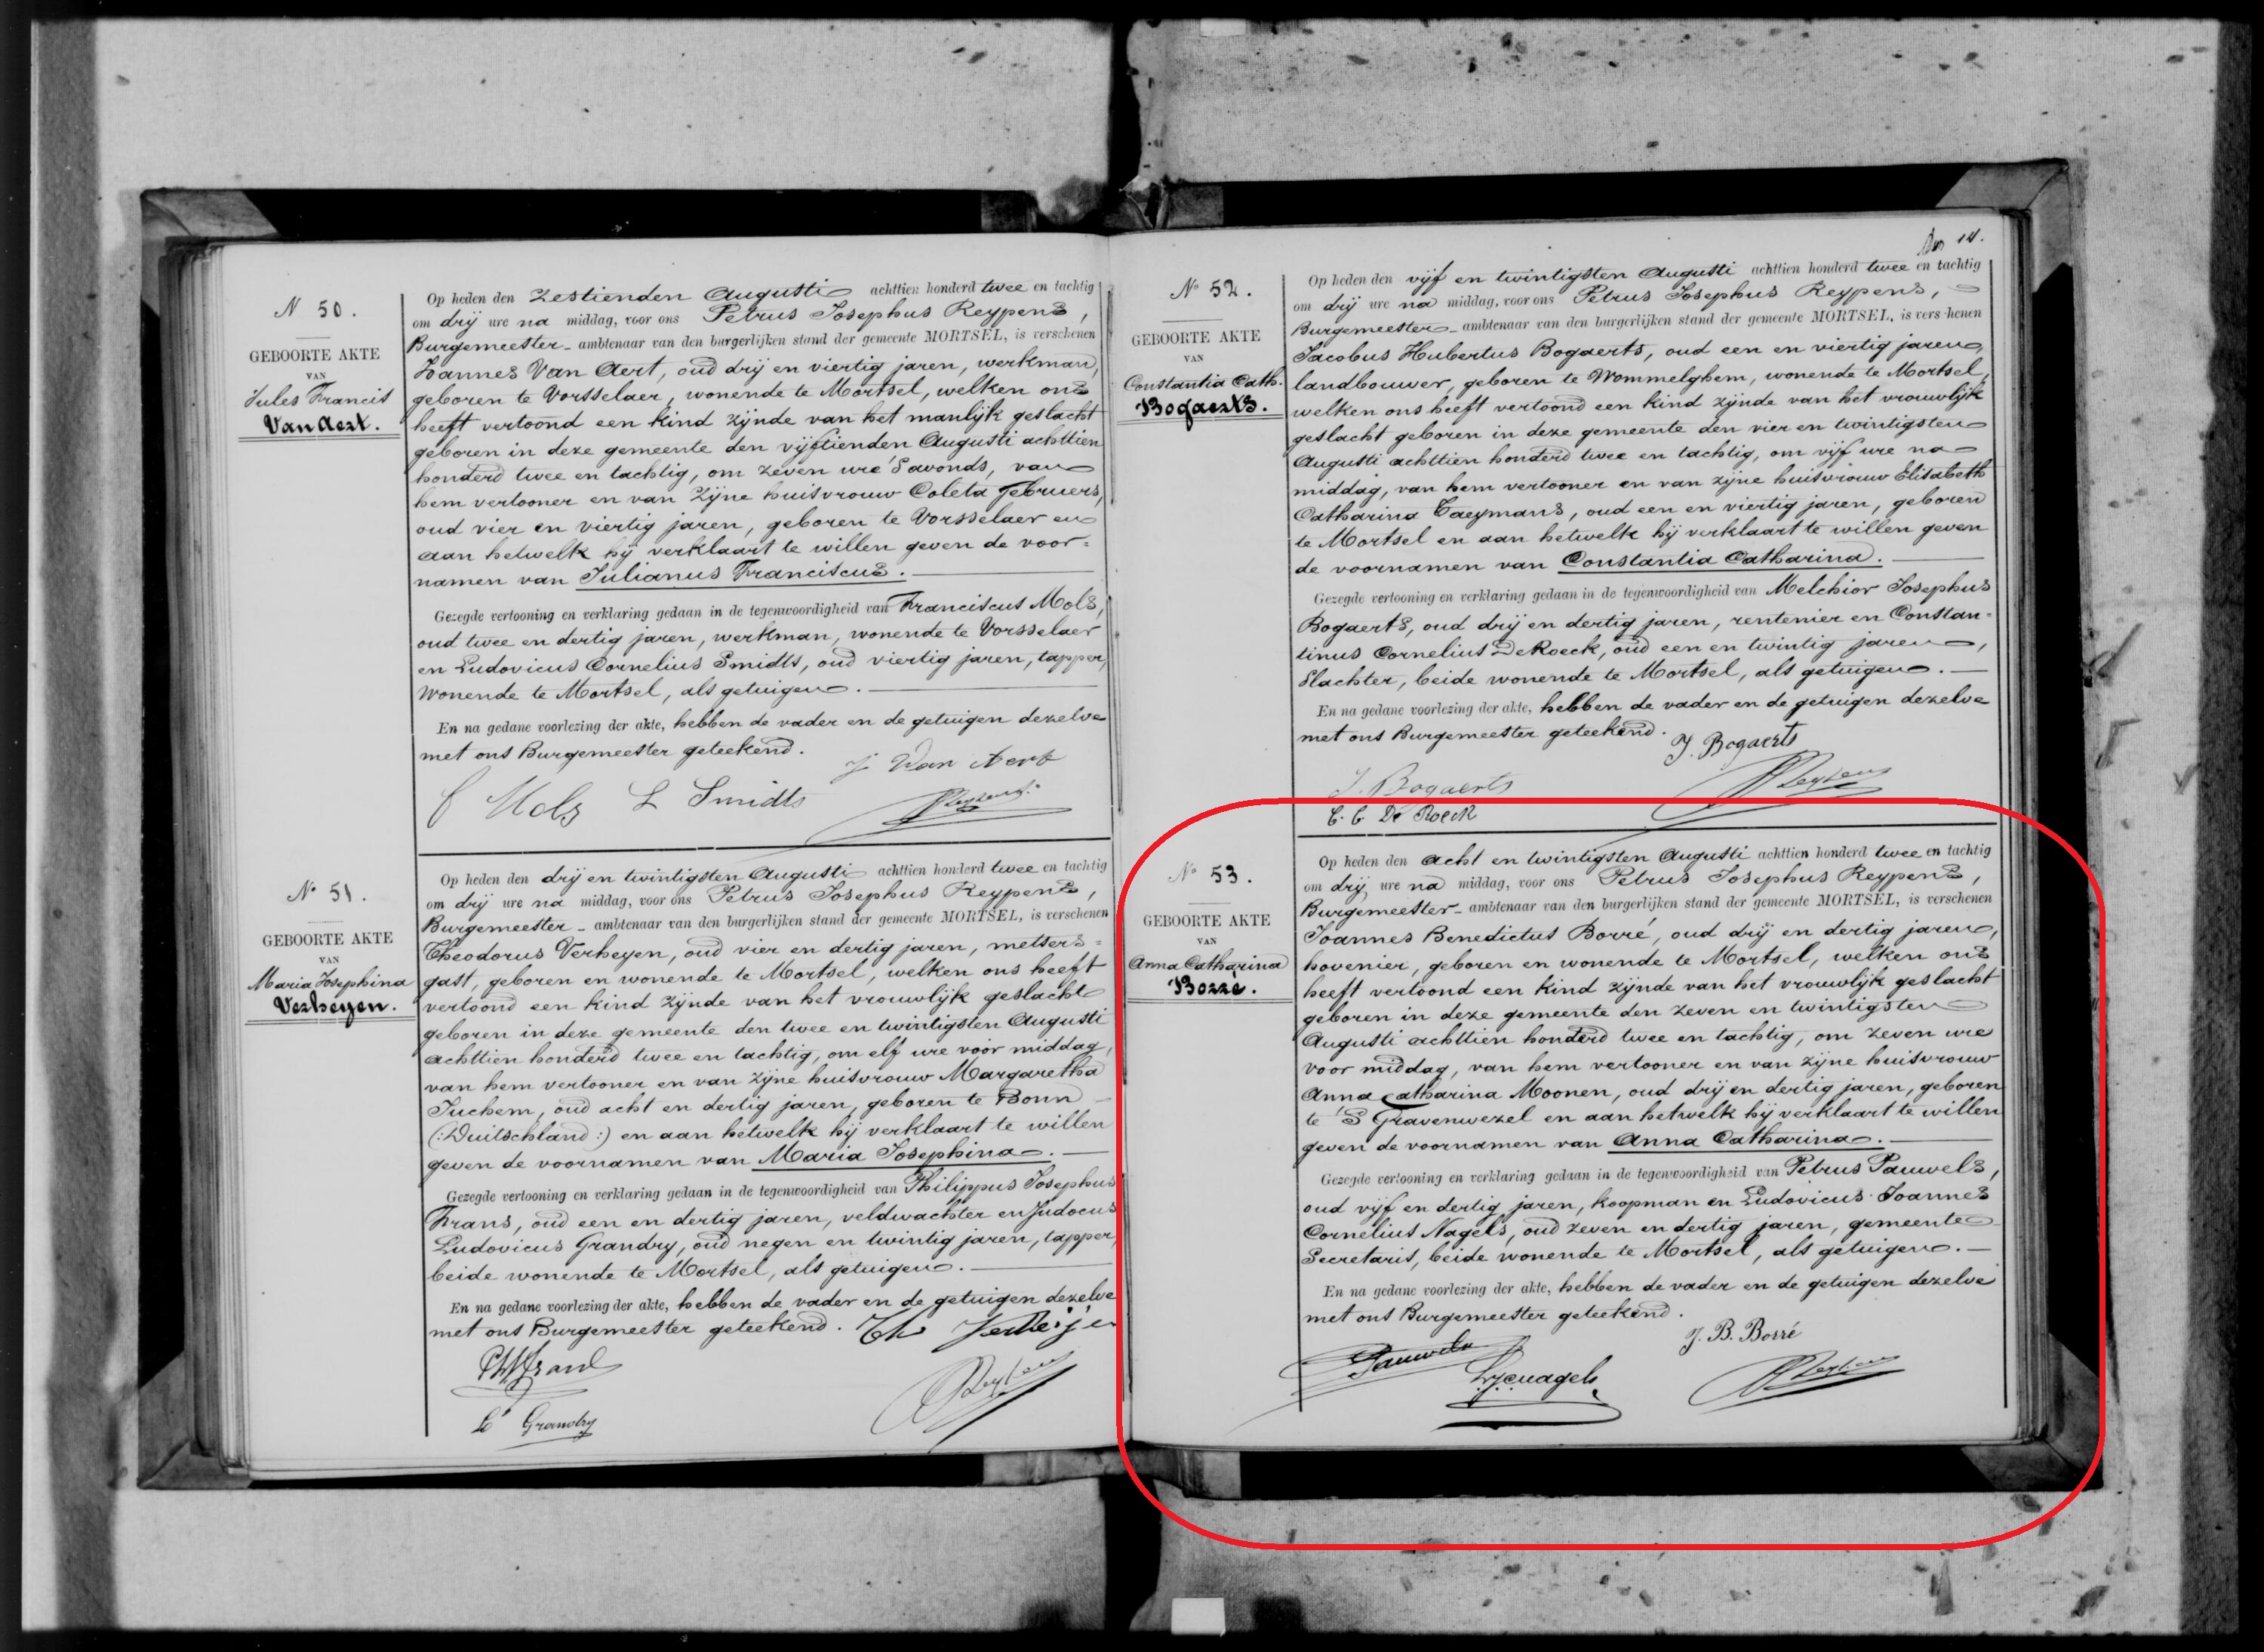 N 50.
GEBOORTE AKTE
VAN
Jules Francis
Van Aert.
Op heden den Zestienden Augusti achttien honderd twee en tachtig
om drij ure na middag, voor ons Petrus Josephus Reypens,
Burgemeester - ambtenaar van den burgerlijken stand der gemeente MORTSEL, is verschenen
Joannes Van Aert, oud drij en viertig jaren, werkman,
geboren te Vorsselaer, wonende te Mortsel, welken ons
heeft vertoond een kind zijnde van het manlijk geslacht
geboren in deze gemeente den vijftienden Augusti achttien
honderd twee en tachtig, om zeven ure 's avonds, van
hem vertooner en van zijne huisvrouw Coleta Februers,
oud vier en viertig jaren, geboren te Vorsselaer en
aan hetwelk hij verklaart te willen geven de voor=
namen van Julianus Franciscus.
Gezegde vertooning en verklaring gedaan in de tegenwoordigheid van Franciscus Mols,
oud twee en dertig jaren, werkman, wonende te Vorsselaer
en Ludovicus Cornelius Smidts, oud viertig jaren, tapper,
wonende te Mortsel, als getuigen.
En na gedane voorlezing der akte, hebben de vader en de getuigen dezelve
met ons Burgemeester geteekend.
J Van Aert
f Mols L Smidts PReypens
N° 51.
GEBOORTE AKTE
VAN
Maria Josephina
Verheyen.
Op heden den drij en twintigsten Augusti achttien honderd twee en tachtig
om drij ure na middag, voor ons Petrus Josephus Reypens,
Burgemeester - ambtenaar van den burgerlijken stand der gemeente MORTSEL, is verschenen
Theodorus Verheyen, oud vier en dertig jaren, metsers=
gast, geboren en wonende te Mortsel, welken ons heeft
vertoond een kind zijnde van het vrouwlijk geslacht
geboren in deze gemeente den twee en twintigsten Augusti
achttien honderd twee en tachtig, om elf ure voor middag,
van hem vertooner en van zijne huisvrouw Margaretha
Juchem, oud acht en dertig jaren, geboren te Bonn
(:Duitschland:) en aan hetwelk hij verklaart te willen
geven de voornamen van Maria Josephina.
Gezegde vertooning en verklaring gedaan in de tegenwoordigheid van Philippus Josephus
Frans, oud een en dertig jaren, veldwachter en Judocus
Ludovicus Grandry, oud negen en twintig jaren, tapper,
beide wonende te Mortsel, als getuigen.
En na gedane voorlezing der akte, hebben de vader en de getuigen dezelve
met ons Burgemeester geteekend. Th Verheijen
PReypens
Grandry
14.
N° 52.
GEBOORTE AKTE
VAN
Constantia Cath.
Bogaerts.
Op heden den vijf en twintigsten Augusti achttien honderd twee en tachtig
om drij ure na middag, voor ons Petrus Josephus Reypens,
Burgemeester - ambtenaar van den burgerlijken stand der gemeente MORTSEL, is verschenen
Jacobus Hubertus Bogaerts, oud een en viertig jaren,
landbouwer, geboren te Wommelghem, wonende te Mortsel,
welken ons heeft vertoond een kind zijnde van het vrouwlijk
geslacht geboren in deze gemeente den vier en twintigsten
Augusti achttien honderd twee en tachtig, om vijf ure na
middag, van hem vertooner en van zijne huisvrouw Elisabeth
Catharina Taeymans, oud een en viertig jaren, geboren
te Mortsel en aan hetwelk hij verklaart te willen geven
de voornamen van Constantia Catharina.
Gezegde vertooning en verklaring gedaan in de tegenwoordigheid van Melchior Josephus
Bogaerts, oud drij en dertig jaren, rentenier en Constan=
tinus Cornelius De Roeck, oud een en twintig jaren,
Slachter, beide wonende te Mortsel, als getuigen.
En na gedane voorlezing der akte, hebben de vader en de getuigen dezelve
met ons Burgemeester geteekend. J. Bogaerts
J. Bogaerts PReypens
C. C. De Roeck
N° 53.
GEBOORTE AKTE
VAN
Anna Catharina
Borre.
Op heden den acht en twintigsten Augusti achttien honderd twee en tachtig
om drij ure na middag, voor ons Petrus Josephus Reypens,
Burgemeester - ambtenaar van den burgerlijken stand der gemeente MORTSEL, is verschenen
Joannes Benedictus Borré, oud drij en dertig jaren,
hovenier, geboren en wonende te Mortsel, welken ons
heeft vertoond een kind zijnde van het vrouwlijk geslacht
geboren in deze gemeente den zeven en twintigsten
Augusti achttien honderd twee en tachtig, om zeven ure
voor middag, van hem vertooner en van zijne huisvrouw
Anna Catharina Moonen, oud drij en dertig jaren, geboren
te 'S Gravenwezel en aan hetwelk hij verklaart te willen
geven de voornamen van Anna Catharina.
Gezegde vertooning en verklaring gedaan in de tegenwoordigheid van Petrus Pauwels,
oud vijf en dertig jaren, koopman en Ludovicus Joannes
Cornelius Nagels, oud zeven en dertig jaren, gemeente
Secretaris, beide wonende te Mortsel, als getuigen.
En na gedane voorlezing der akte, hebben de vader en de getuigen dezelve
met ons Burgemeester geteekend.
J. B. Borré
Pauwels
LJCNagels PReypens